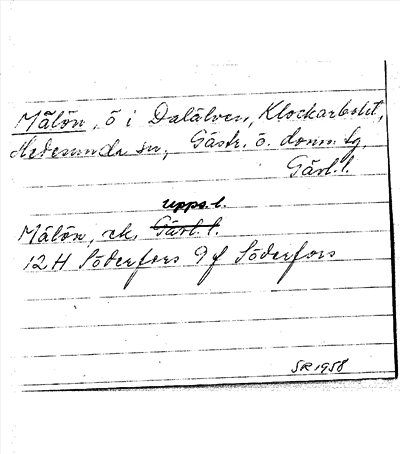 Mälön, ö i Dalälven, Klockarbolet,
Hedesunda sn, Gästr. ö. doms. tg,
Gävl. l.
Upps. l.
Mälön, ek. Gävl. l.
12H Söderfors 9f Söderfors
SR 1958